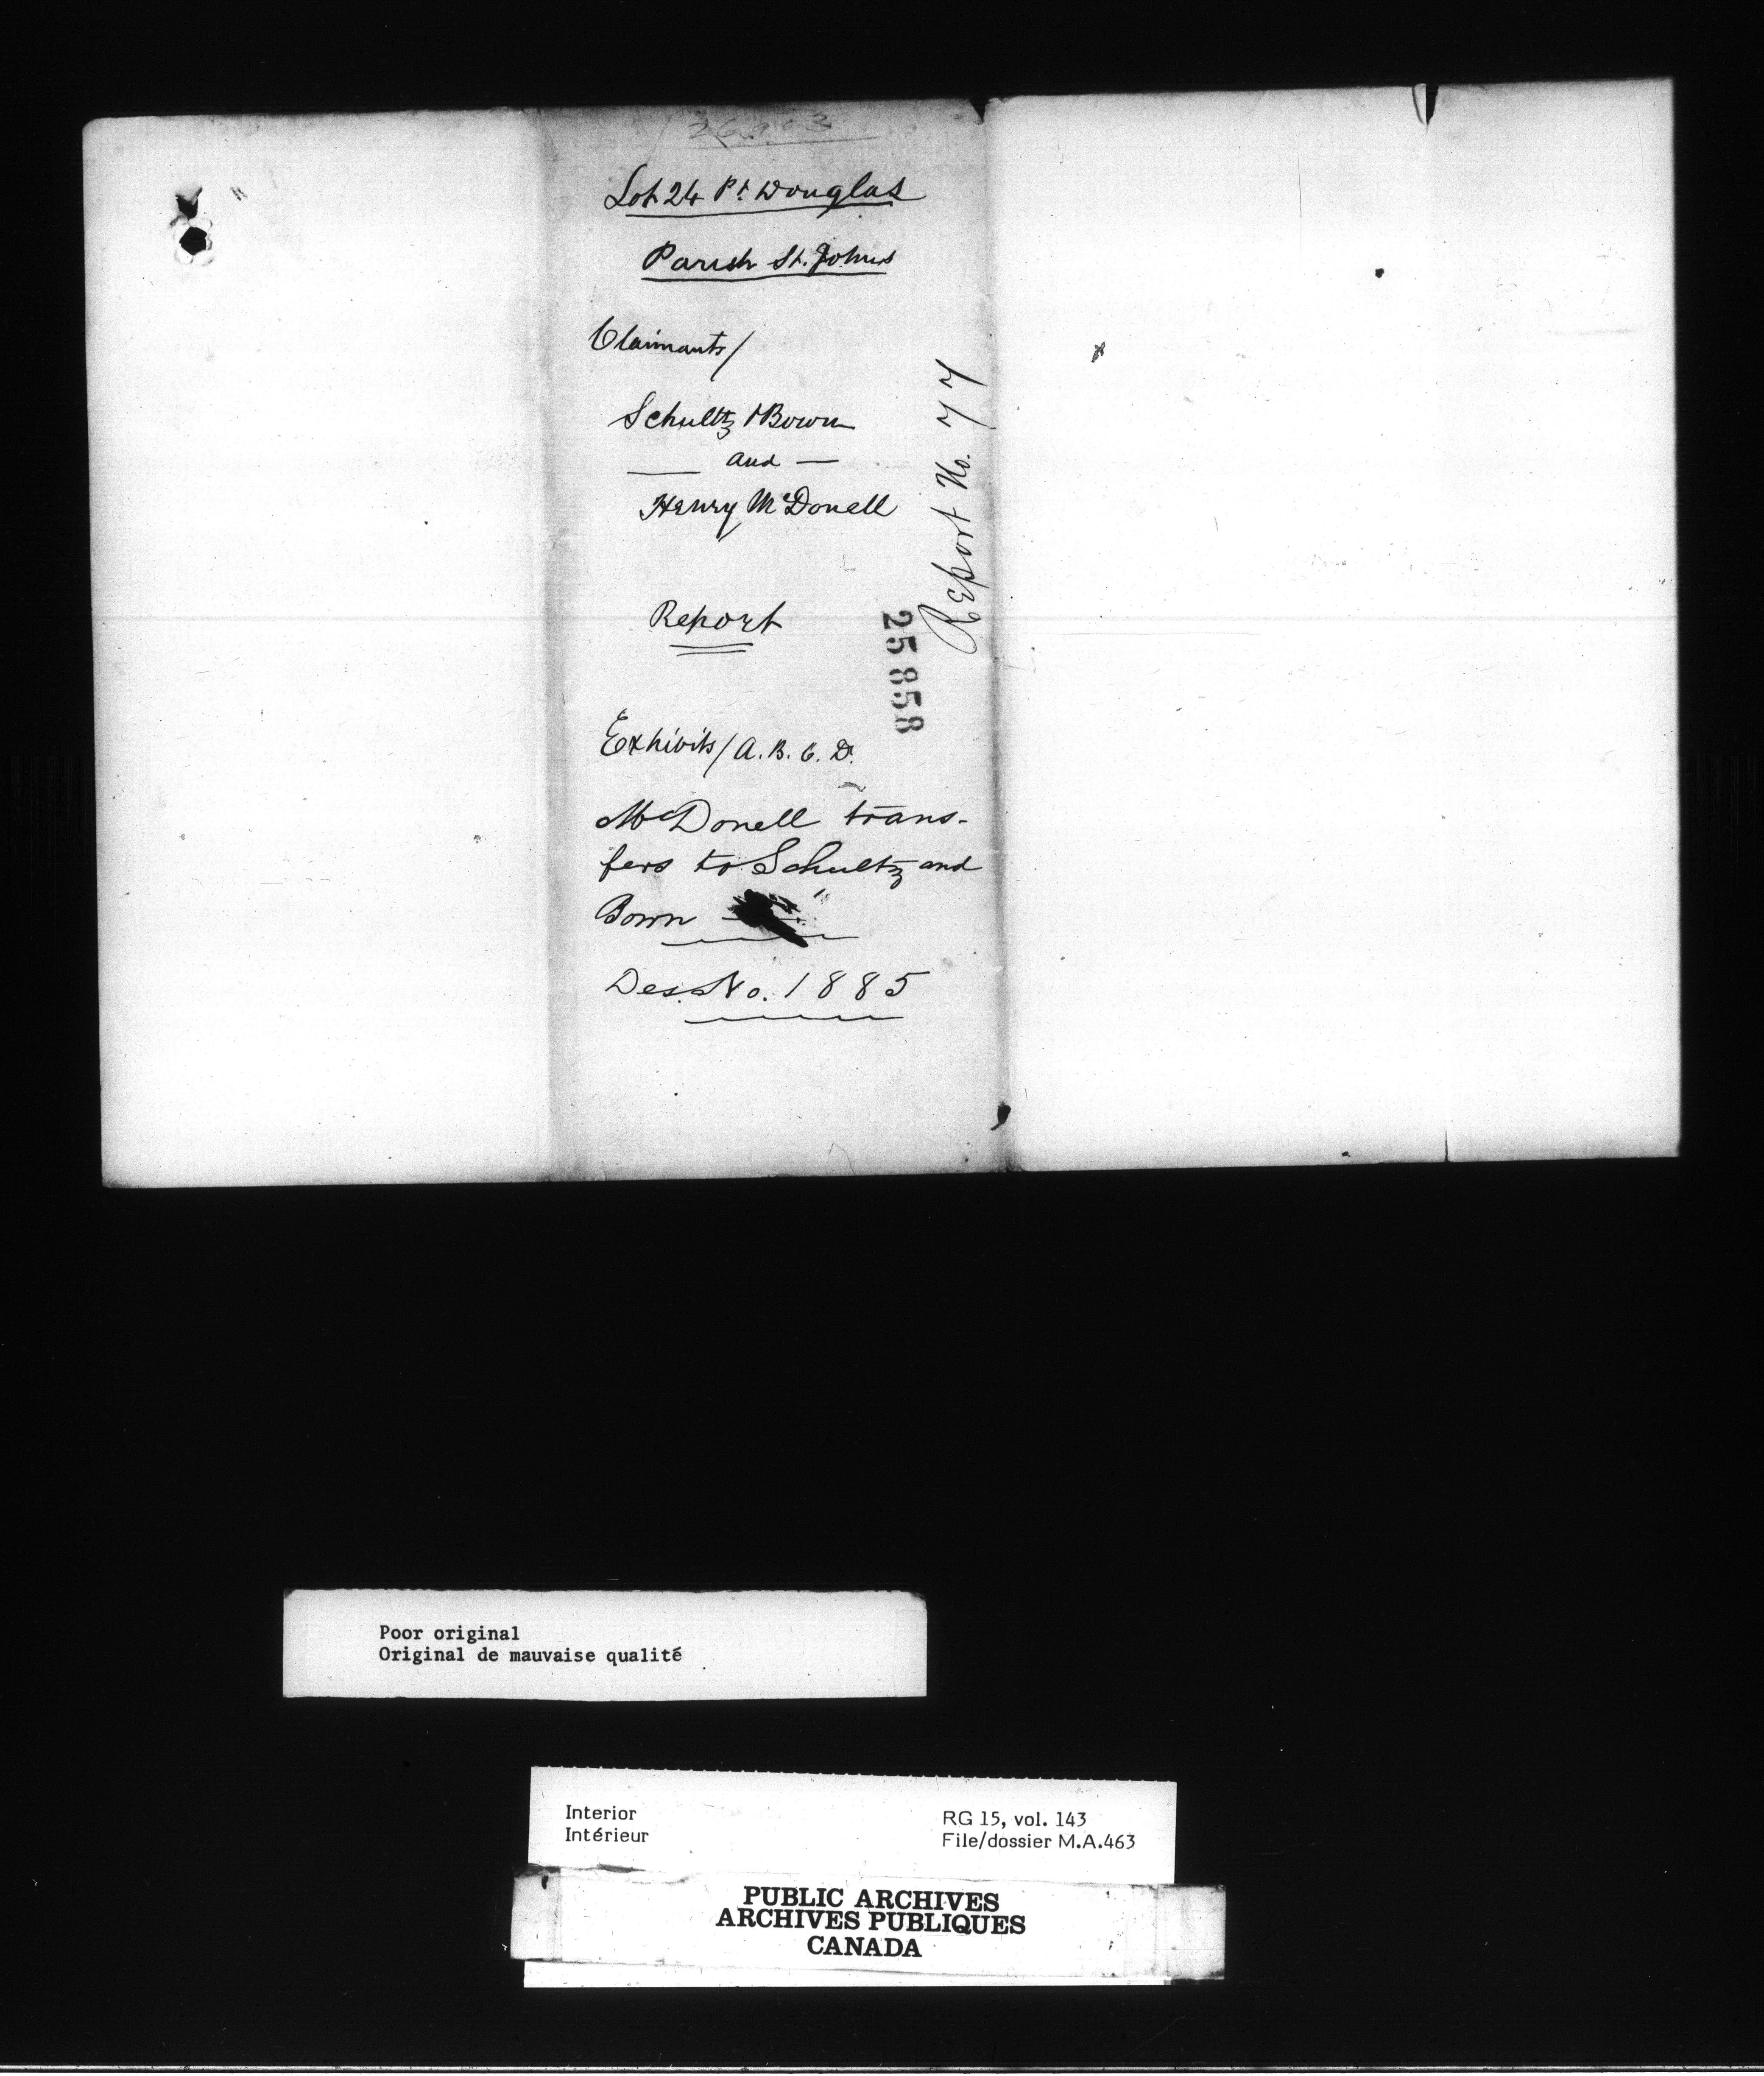 Lot 24 Pt. Douglas
Parish St. Johns
Claimants/
Schultz & Bown
and
Henry McDonell
Report No. 77
Report
25858
Exhibits/ A. B. C. D.
McDonell trans-
fers to Schultz and
Bown
Des. No. 1885
Poor original
Original de mauvaise qualité
Interior
Intérieur
RG 15, vol. 143
File/dossier M.A.463
PUBLIC ARCHIVES
ARCHIVES PUBLIQUES
CANADA